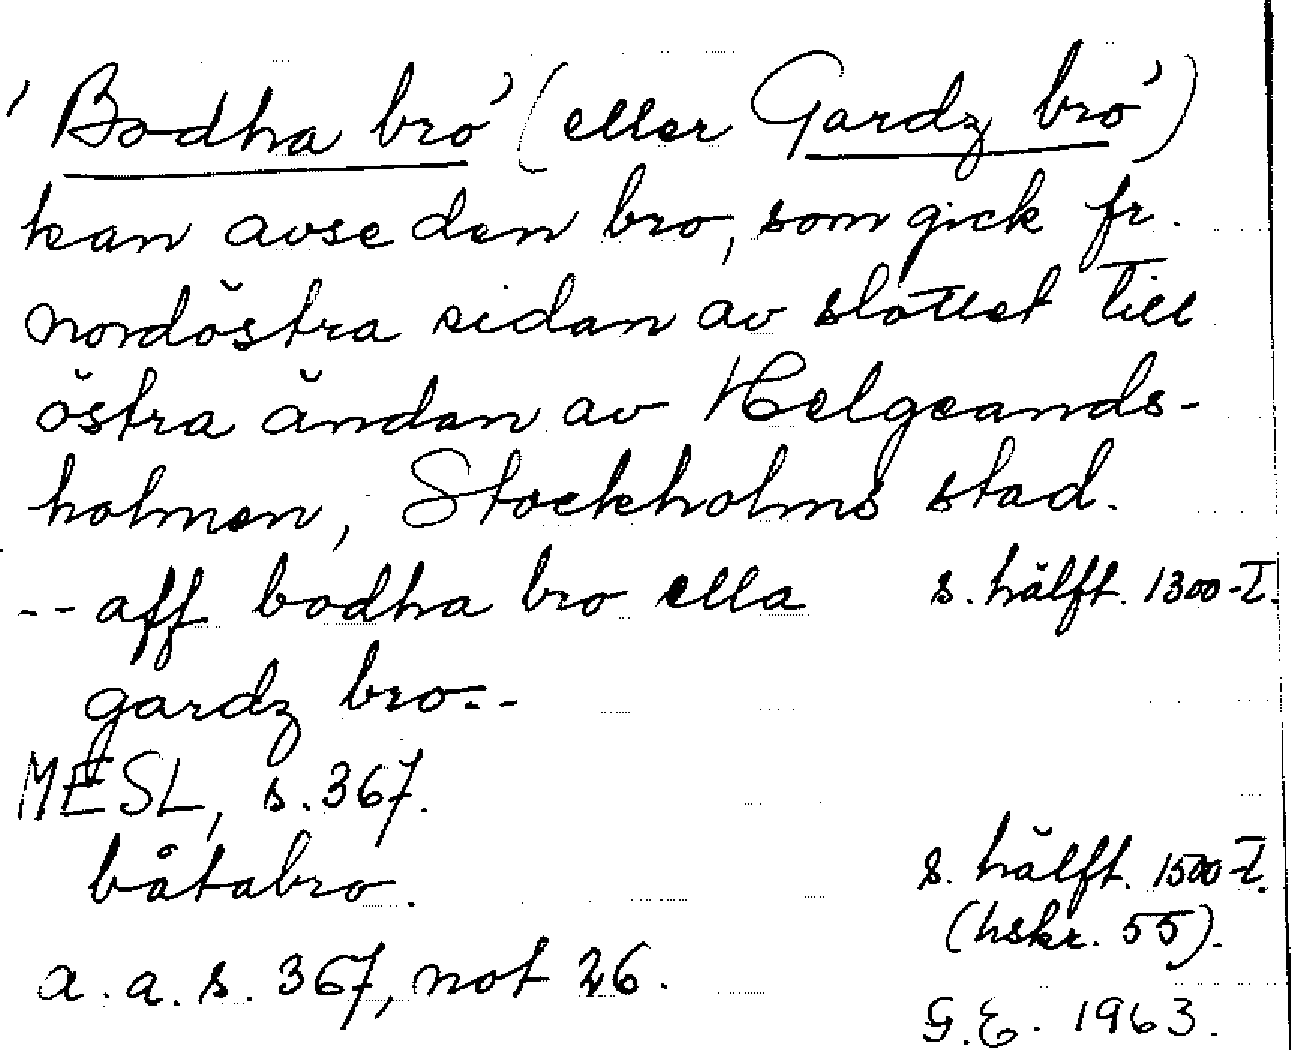 'Bodha bro' (eller Gardz bro')
kan avse den bro, som gick fr.
nordöstra sidan av slottet till
östra ändan av Helgeands-
holmen, Stockholms stad.
-- aff bodha bro ella s. hälft. 1300-t.
gardz bro--
MESL, s. 367.
båtabro. s. hälft. 1500-t.
(hskr. 55).
a. a. s. 367, not 26.
G.E. 1963.